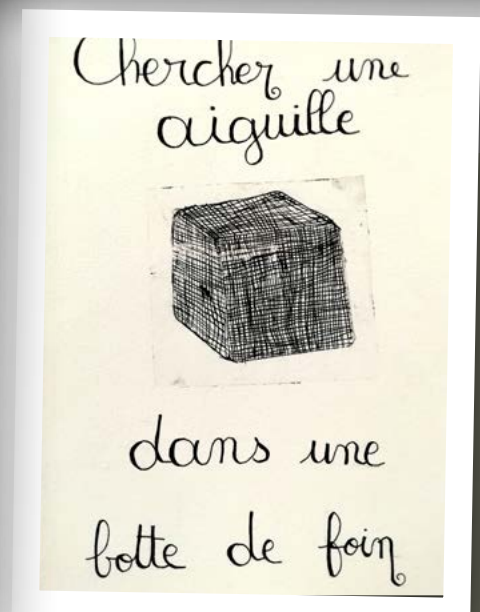 Chercher une
aiguille
dans une
botte de foin